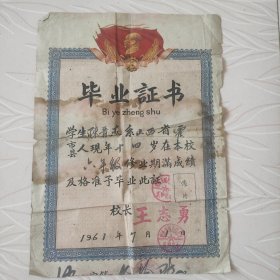 毕业証书
Bi ye zheng shu
学生 系江西省
县人现年十四岁在本校
六年级修业期满成绩
及格准予毕业此証
校长 王志勇
1961年7月1日